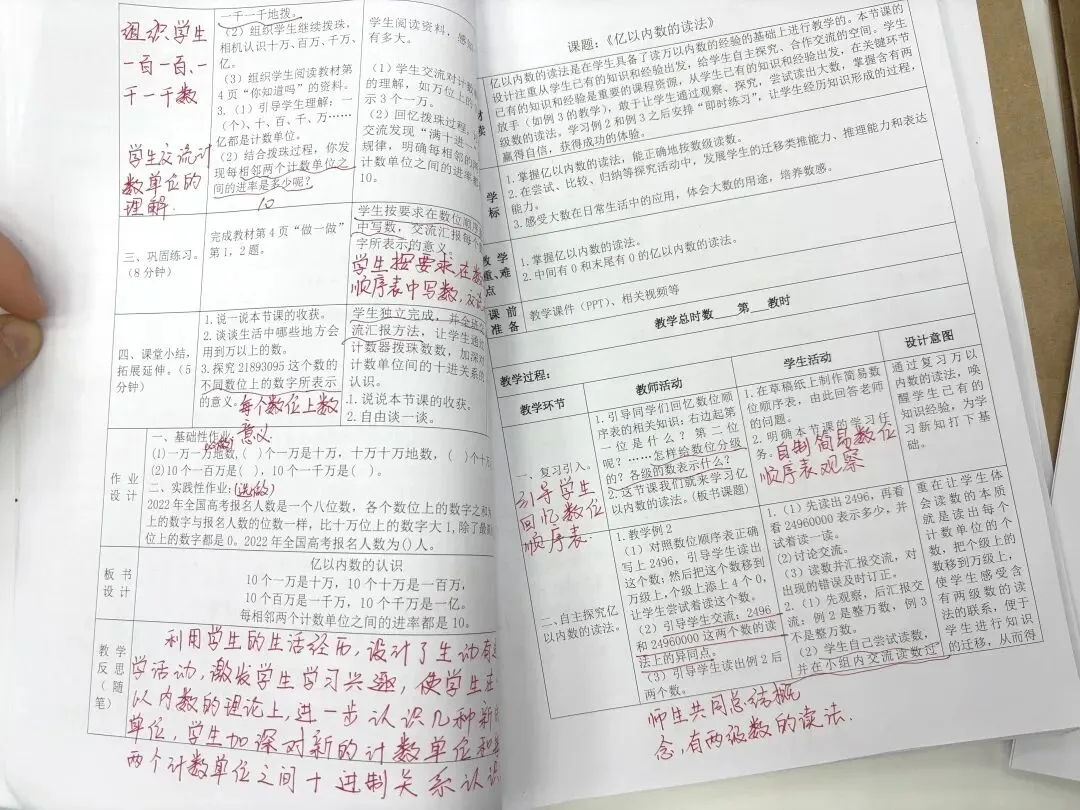 组织学生
一百一百、一
千一千数
学生交流计
数单位的
理解.
一千一千地拨。
（2）组织学生继续拨珠，
相机认识十万、百万、千万、
亿。
（3）组织学生阅读教材第
4页“你知道吗”的资料。
3.（1）引导学生理解：一
（个）、十、百、千、万……
亿都是计数单位。
（2）结合拨珠过程，你发
现每相邻两个计数单位之
间的进率是多少呢？
10
学生阅读资料，感
有多大。
（1）学生交流对计数
的理解，如万位上的
示3个一万。
（2）回忆拨珠过程，
交流发现“满十进
规律，明确每相邻的
计数单位之间的进率都
10。
三、巩固练习。
（8分钟）
完成教材第4页“做一做”
第1，2题。
学生按要求在数位顺序
中写数，交流汇报每个
字所表示的意义。
学生按要求在数
顺序表中写数,
四、课堂小结，
拓展延伸。（5
分钟）
1.说一说本节课的收获。
2.谈谈生活中哪些地方会
用到万以上的数。
3.探究21893095这个数的
不同数位上的数字所表示
的意义。
每个数位上数
意义
学生独立完成，并全班交
流汇报方法，让学生通过
计数器拨珠数数，加深对
计数单位间的十进关系的
认识。
1.说说本节课的收获。
2.自由谈一谈。
作业
设计
一、基础性作业：
(1)一万一万地数，（ ）个一万是十万，十万十万地数，（ ）个十万
(2)10个一百万是（ ），10个一千万是（ ）。
二、实践性作业：(选做)
2022年全国高考报名人数是一个八位数，各个数位上的数字之和
上的数字与报名人数的位数一样，比十万位上的数字大1,除了最高
位上的数字都是0。2022年全国高考报名人数为()人。
板书
设计
亿以内数的认识
10个一万是十万，10个十万是一百万，
10个百万是一千万，10个千万是一亿。
每相邻两个计数单位之间的进率都是10。
教学
反思
（随
笔）
利用学生的生活经历，设计了生动有
学活动，激发学生学习兴趣，使学生在
以内数的理论上,进一步认识几种新
单位，学生加深对新的计数单位和
两个计数单位之间十进制关系认识
课题：《亿以内数的读法》
亿以内数的读法是在学生具备了读万以内数的经验的基础上进行教学的。本节课的
设计注重从学生已有的知识和经验出发，给学生自主探究、合作交流的空间。学生
已有的知识和经验是重要的课程资源，从学生已有的知识和经验出发，在关键环节
放手（如例3的教学），敢于让学生通过观察、探究，尝试读出大数，掌握含有两
级数的读法。学习例2和例3之后安排“即时练习”，让学生经历知识形成的过程，
赢得自信，获得成功的体验。
学
标
1.掌握亿以内数的读法，能正确地按数级读数。
2.在尝试、比较、归纳等探究活动中，发展学生的迁移类推能力、推理能力和表达
能力。
3.感受大数在日常生活中的应用，体会大数的用途，培养数感。
教学
重、难
点
1.掌握亿以内数的读法。
2.中间有0和末尾有0的亿以内数的读法。
课前
准备
教学课件（PPT）、相关视频等
教学总时数 第 教时
教学过程：
教学环节
教师活动
学生活动
设计意图
一、复习引入。
引导学生
回忆数位
顺序表.
1.引导同学们回忆数位顺
序表的相关知识：右边起第
一位是什么？第二位
呢？……怎样给数位分级
的？各级的数表示什么？
2.这节课我们就来学习亿
以内数的读法。(板书课题)
1.在草稿纸上制作简易数
位顺序表，由此回答老师
的问题。
2.明确本节课的学习任
务。
自制简易数位
顺序表,观察
通过复习万以
内数的读法，唤
醒学生已有的
知识经验，为学
习新知打下基
础。
二、自主探究亿
以内数的读法。
1.教学例2
（1）对照数位顺序表正确
写上2496，引导学生读出
这个数；然后把这个数移到
万级上，个级上添上4个0，
让学生尝试着读这个数。
（2）引导学生交流：2496
和24960000这两个数的读
法上的异同点。
（3）引导学生读出例2后
两个数。
1.（1）先读出2496，再看
看24960000表示多少，并
试着读一读。
(2)讨论交流。
（3）读数并汇报交流，对
出现的错误及时订正。
2.（1）先观察，后汇报交
流：例2是整万数，例3
不是整万数。
（2）学生自己尝试读数，
并在小组内交流读数过
重在让学生体
会读数的本质
就是读出每个
计数单位的个
数，把个级上的
数移到万级上，
使学生感受含
有两级数的读
法的联系，便于
学生进行知识
的迁移，从而得
师生共同总结概
念,有两级数的读法.